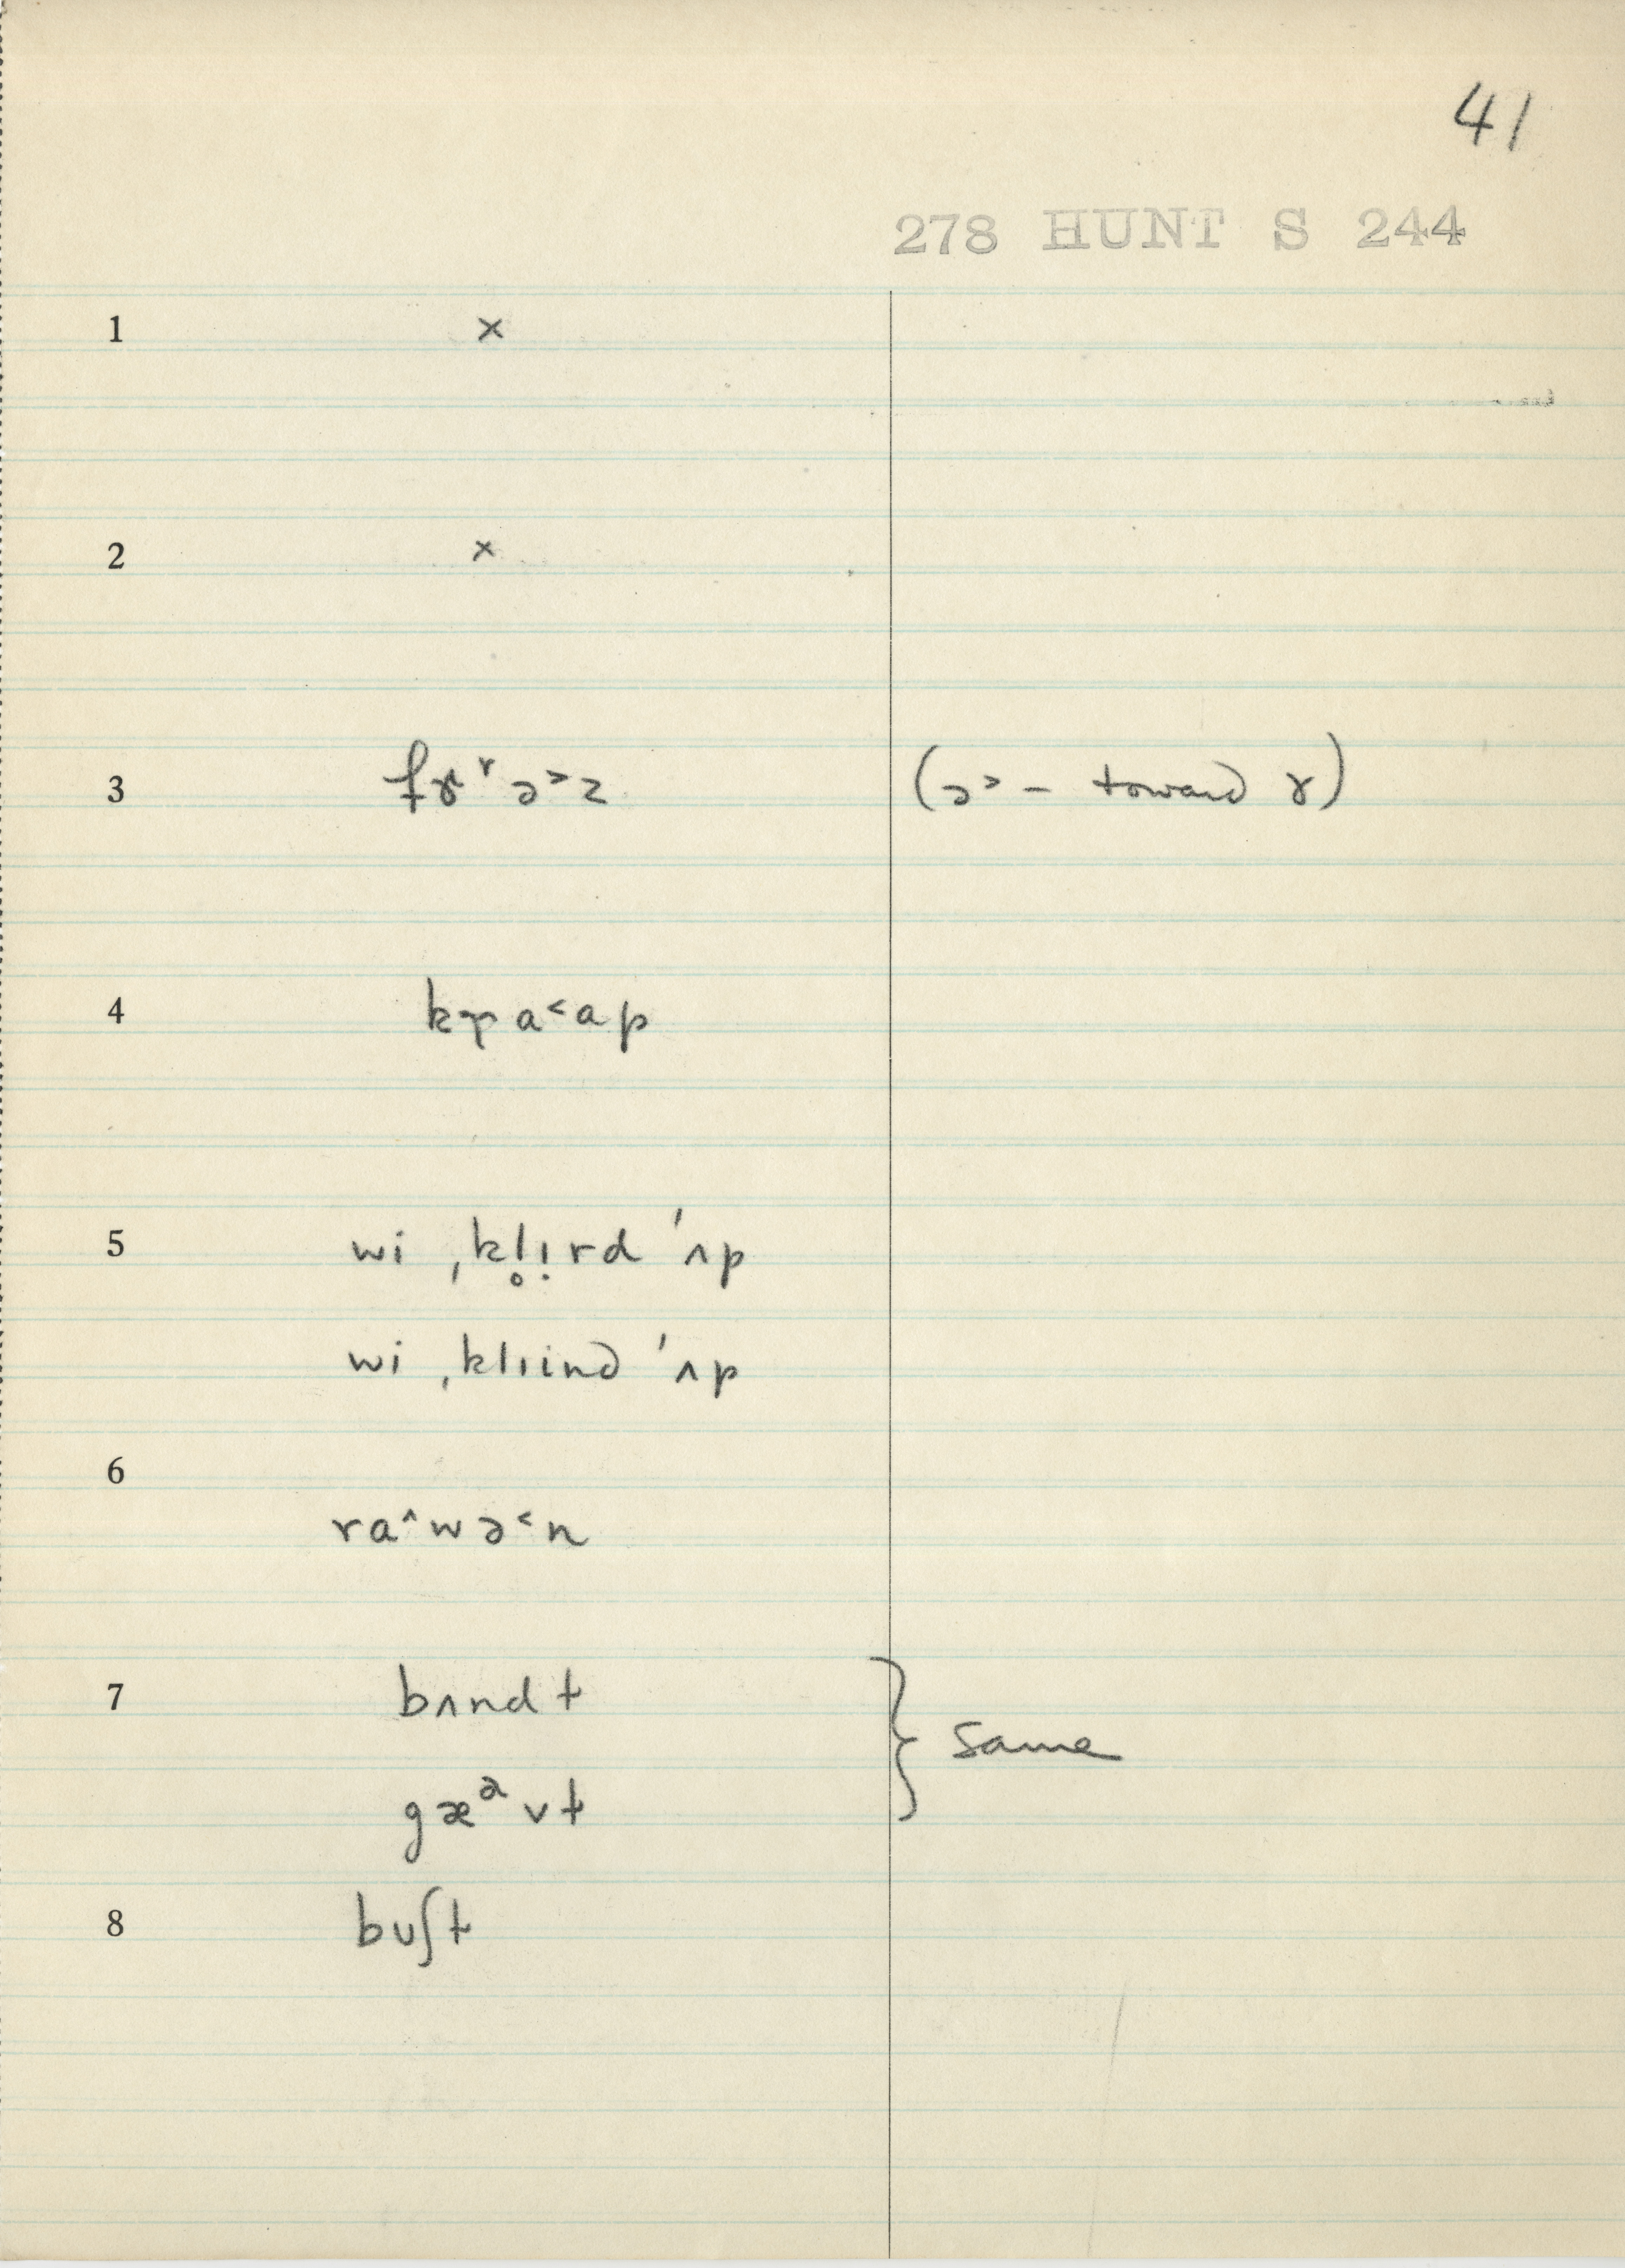 41
278 HUNT S 244
1 ×
2 ×
3 fɤʳɔ˃z (ɔ˃ – toward ɤ)
4 krɑ˂ɑp
5 wi ˌkl̥ı̣rd ˈʌp
wi ˌklıind ˈʌp
6
ra^wə˂n
7 bʌndt
gæᵊvt } same
8 buʃt